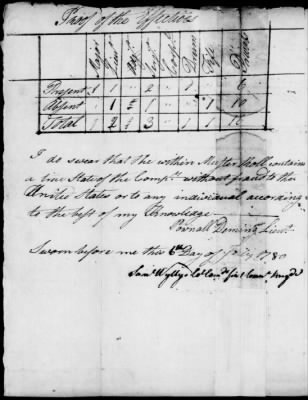 Proof of the Effectives
Lieut Serjt Corpl Drums Fife Privts
Present 1 1 2 1 6
Absent 1 1 1 10
Total 1 2 3 1 1
I do swear that the within Muster Roll contains
a true State of the Compy without fraud to the
United States or to any individual according
to the best of my Knowledge
Pownall Deming Lieut
Sworn before me this 6th Day of 1780
Saml Wyllys Col